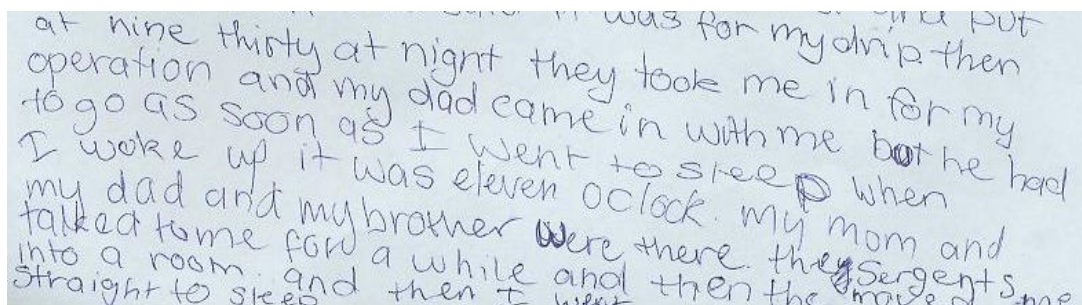 it was for my drip. then
at nine thirty at night they took me in for my
operation and my dad came in with me but he had
to go as soon as I went to sleep when
I woke up it was eleven oclock. my mom and
my dad and my brother were there. they
talked to me for a while and then the Sergents
into a room. and then I went me
straight to sleep